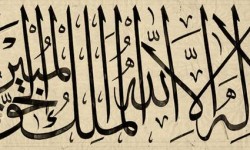 له إلا الله الملك الحق المبين